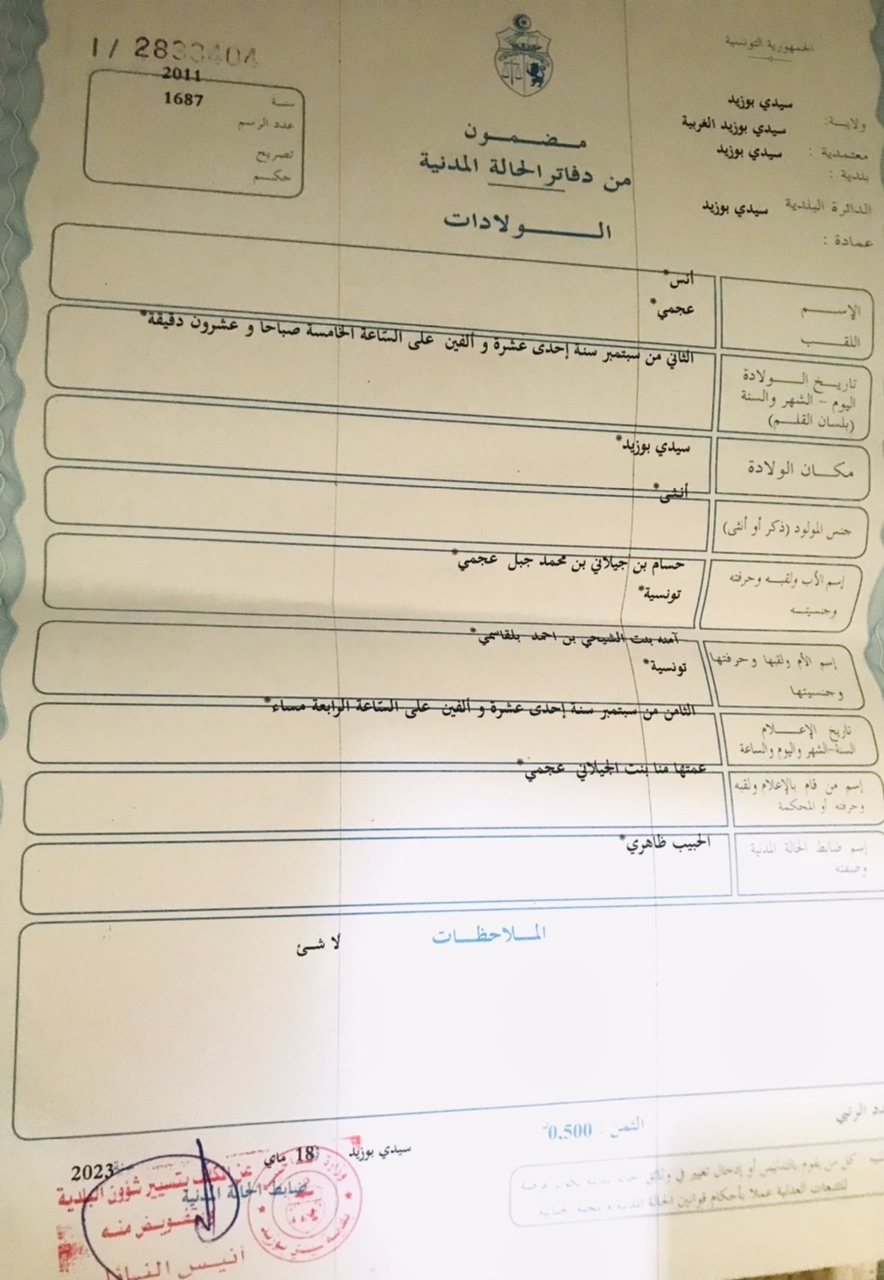 الجمهورية التونسية
1 / 2833404
سنة 2011
عدد الرسم 1687
تصريح
حكم
مضمون
من دفاتر الحالة المدنية
الولادات
ولاية: سيدي بوزيد
معتمدية : سيدي بوزيد الغربية
بلدية : سيدي بوزيد
الدائرة البلدية سيدي بوزيد
عمادة :
الإسم أنس*
اللقب عجمي*
تاريخ الولادة
اليوم - الشهر والسنة
(بلسان القلم)
الثاني من سبتمبر سنة إحدى عشرة و ألفين على السّاعة الخامسة صباحا و عشرون دقيقة*
مكان الولادة سيدي بوزيد*
جنس المولود (ذكر أو أنثى) أنثى*
إسم الأب ولقبه وحرفته
وجنسيته
حسام بن جيلاني بن محمد جبل عجمي*
تونسية*
إسم الأم ولقبها وحرفتها
وجنسيتها
آمنه بنت الشيحي بن احمد بلقاسمي*
تونسية*
تاريخ الإعلام
السنة-الشهر واليوم والساعة
الثامن من سبتمبر سنة إحدى عشرة و ألفين على السّاعة الرابعة مساء*
إسم من قام بالإعلام ولقبه
وحرفته أو المحكمة
عمتها منا بنت الجيلاني عجمي*
إسم ضابط الحالة المدنية
وصفته
الحبيب ظاهري*
الملاحظات
لا شئ
الثمن : 0,500
سيدي بوزيد 18 ماي 2023
ضابط الحالة المدنية
عن المكلف بتسيير شؤون البلدية
وبتفويض منه
أنيس